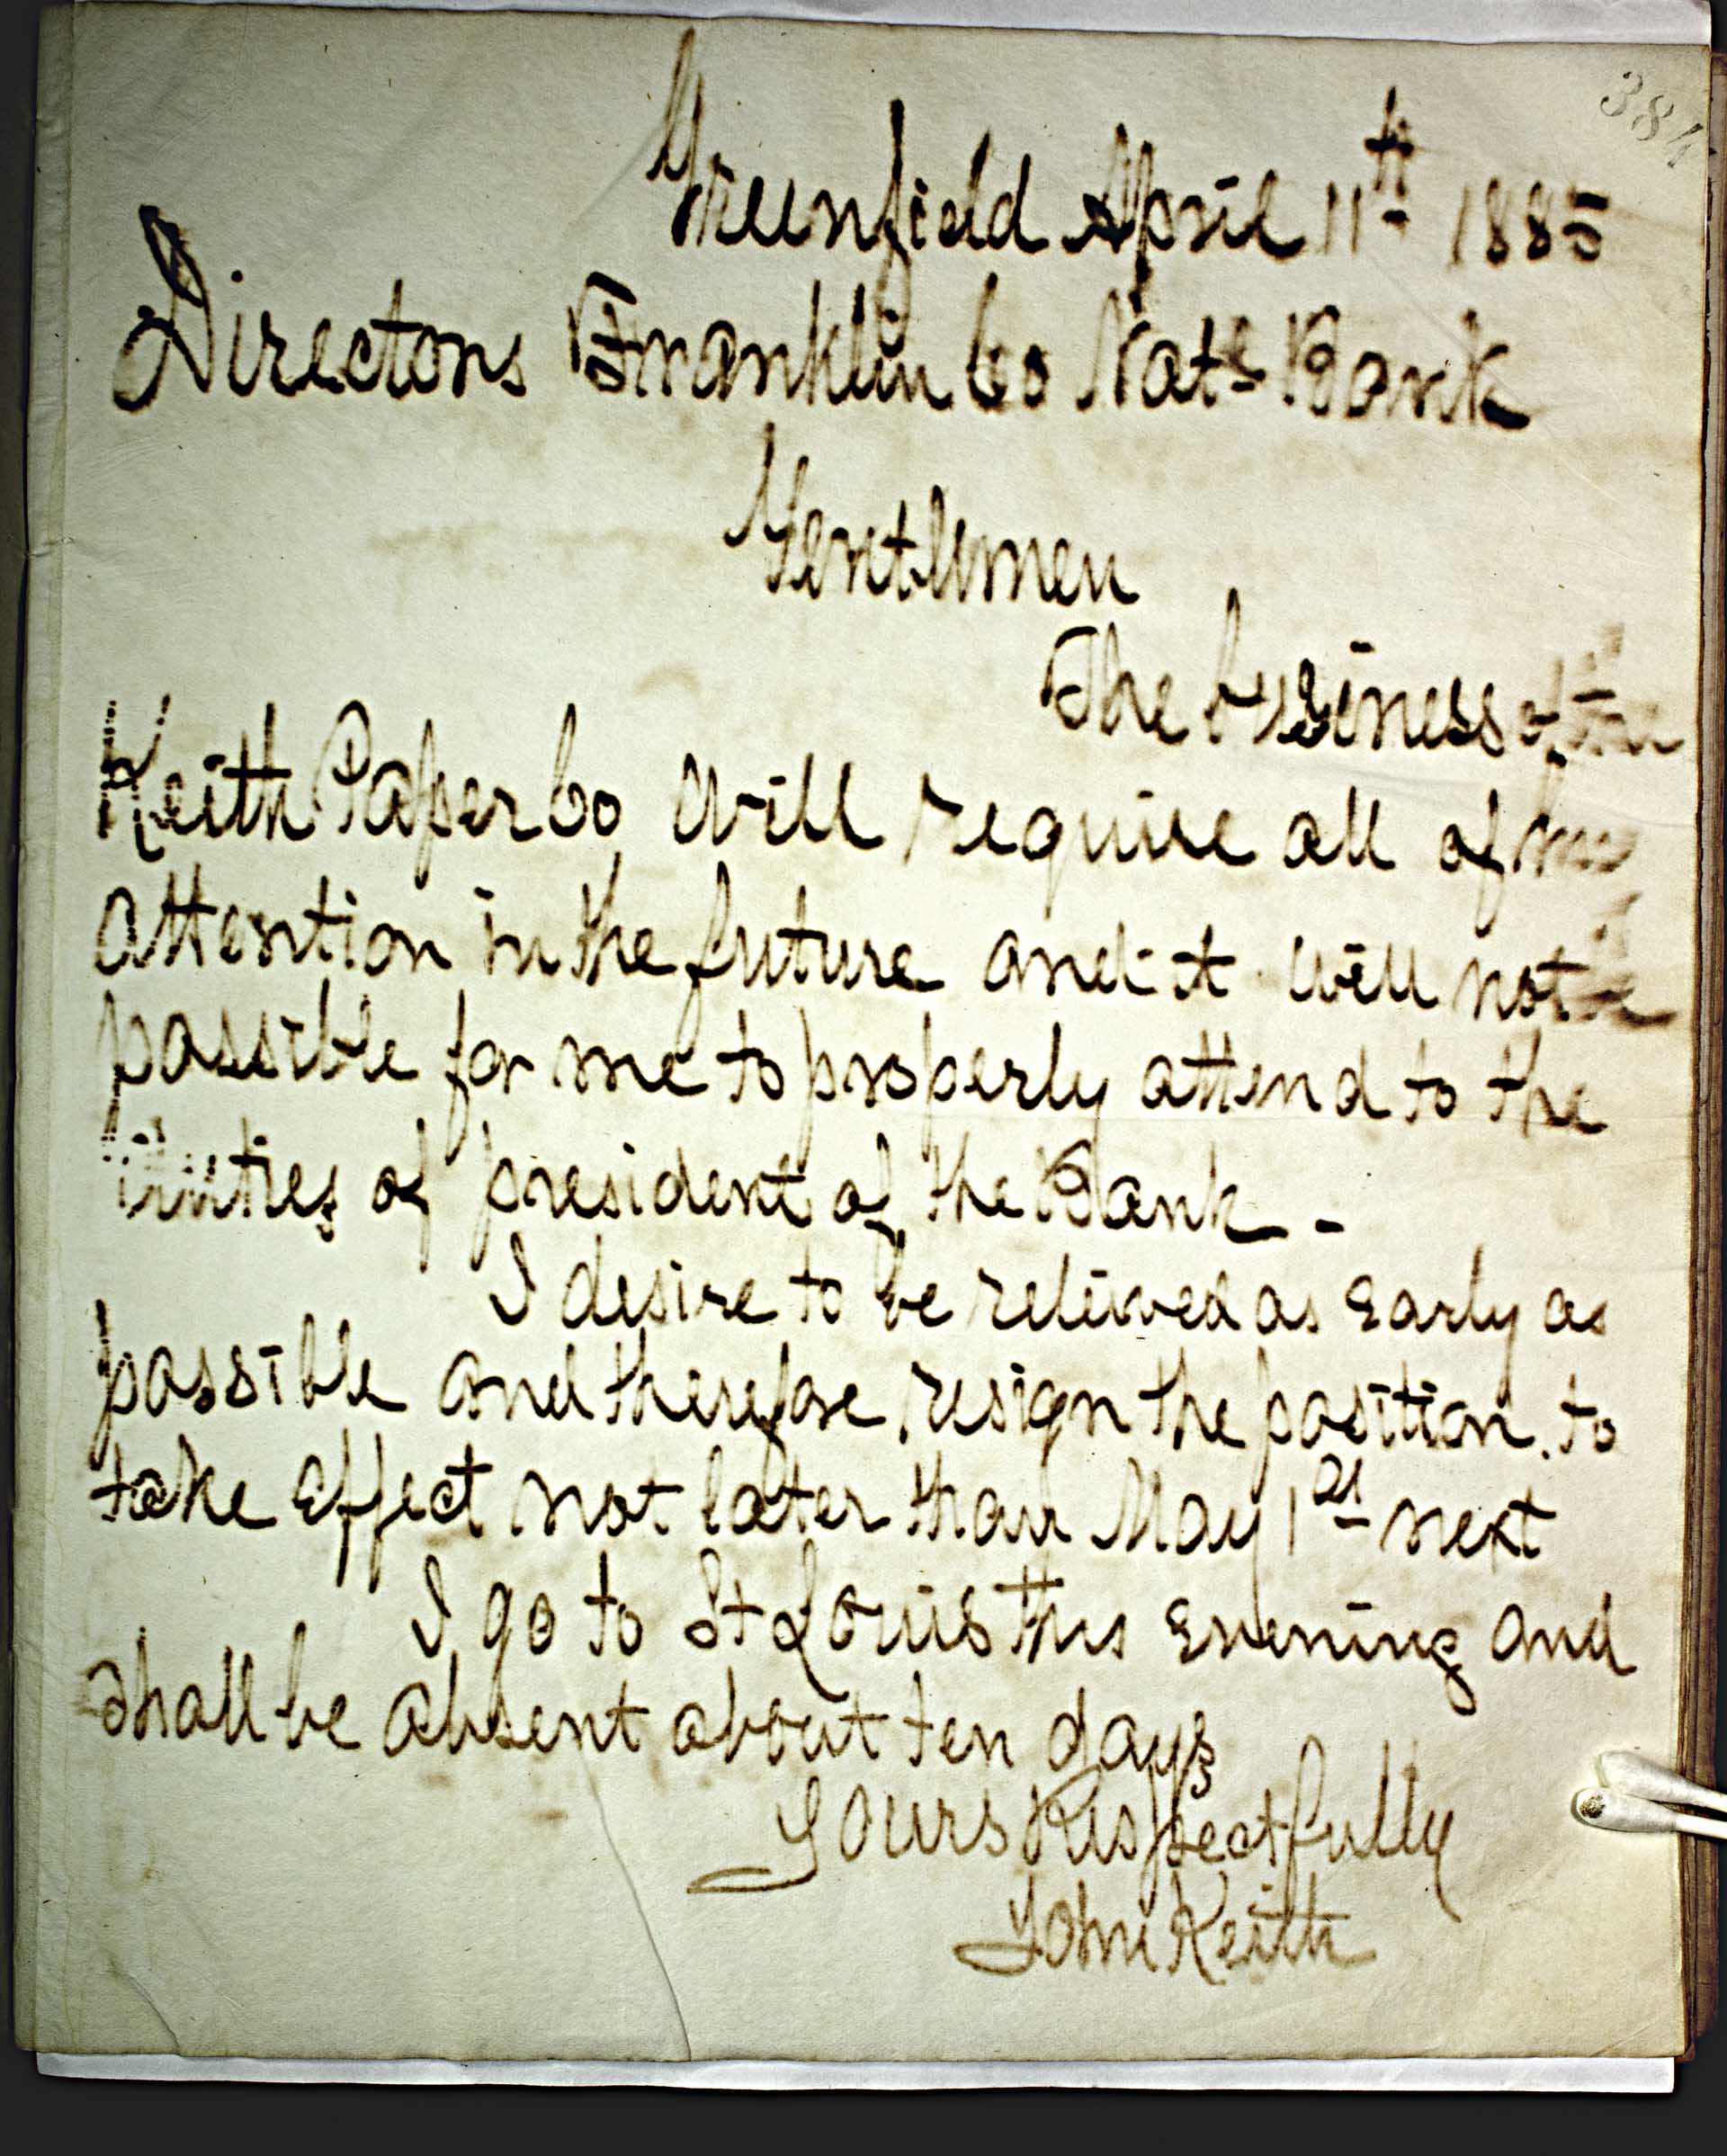 384
Greenfield April 11th 1885
Directors Franklin Co Natl Bank
Gentlemen
The business of the
Keith Paper Co will require all of my
attention in the future and it will not be
possible for me to properly attend to the
duties of president of the Bank -
I desire to be relieved as early as
possible and therefore resign the position. to
take effect not later than May 1st next
I go to St Louis this evening and
shall be absent about ten days
Yours Respectfully
John Keith